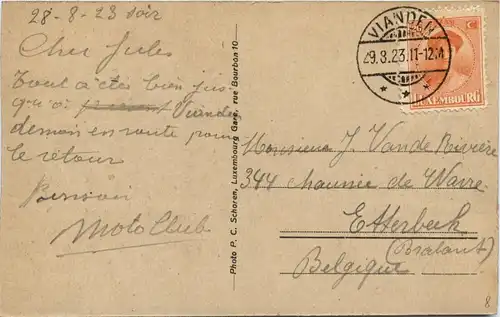 28-8-23 soir
Cher Jules
Tout a été bien jus-
qu'à présent Vianden
demain en route pour
le retour
Bonsoir
Moto Club
Photo P. C. Schoren, Luxembourg Gare, rue Bourbon 10
VIANDEN
29.8.23.11-12M
LUXEMBOURG
Monsieur J. Vande Rivière
344 Chaussée de Wavre
Etterbeek
(Brabant)
Belgique
8